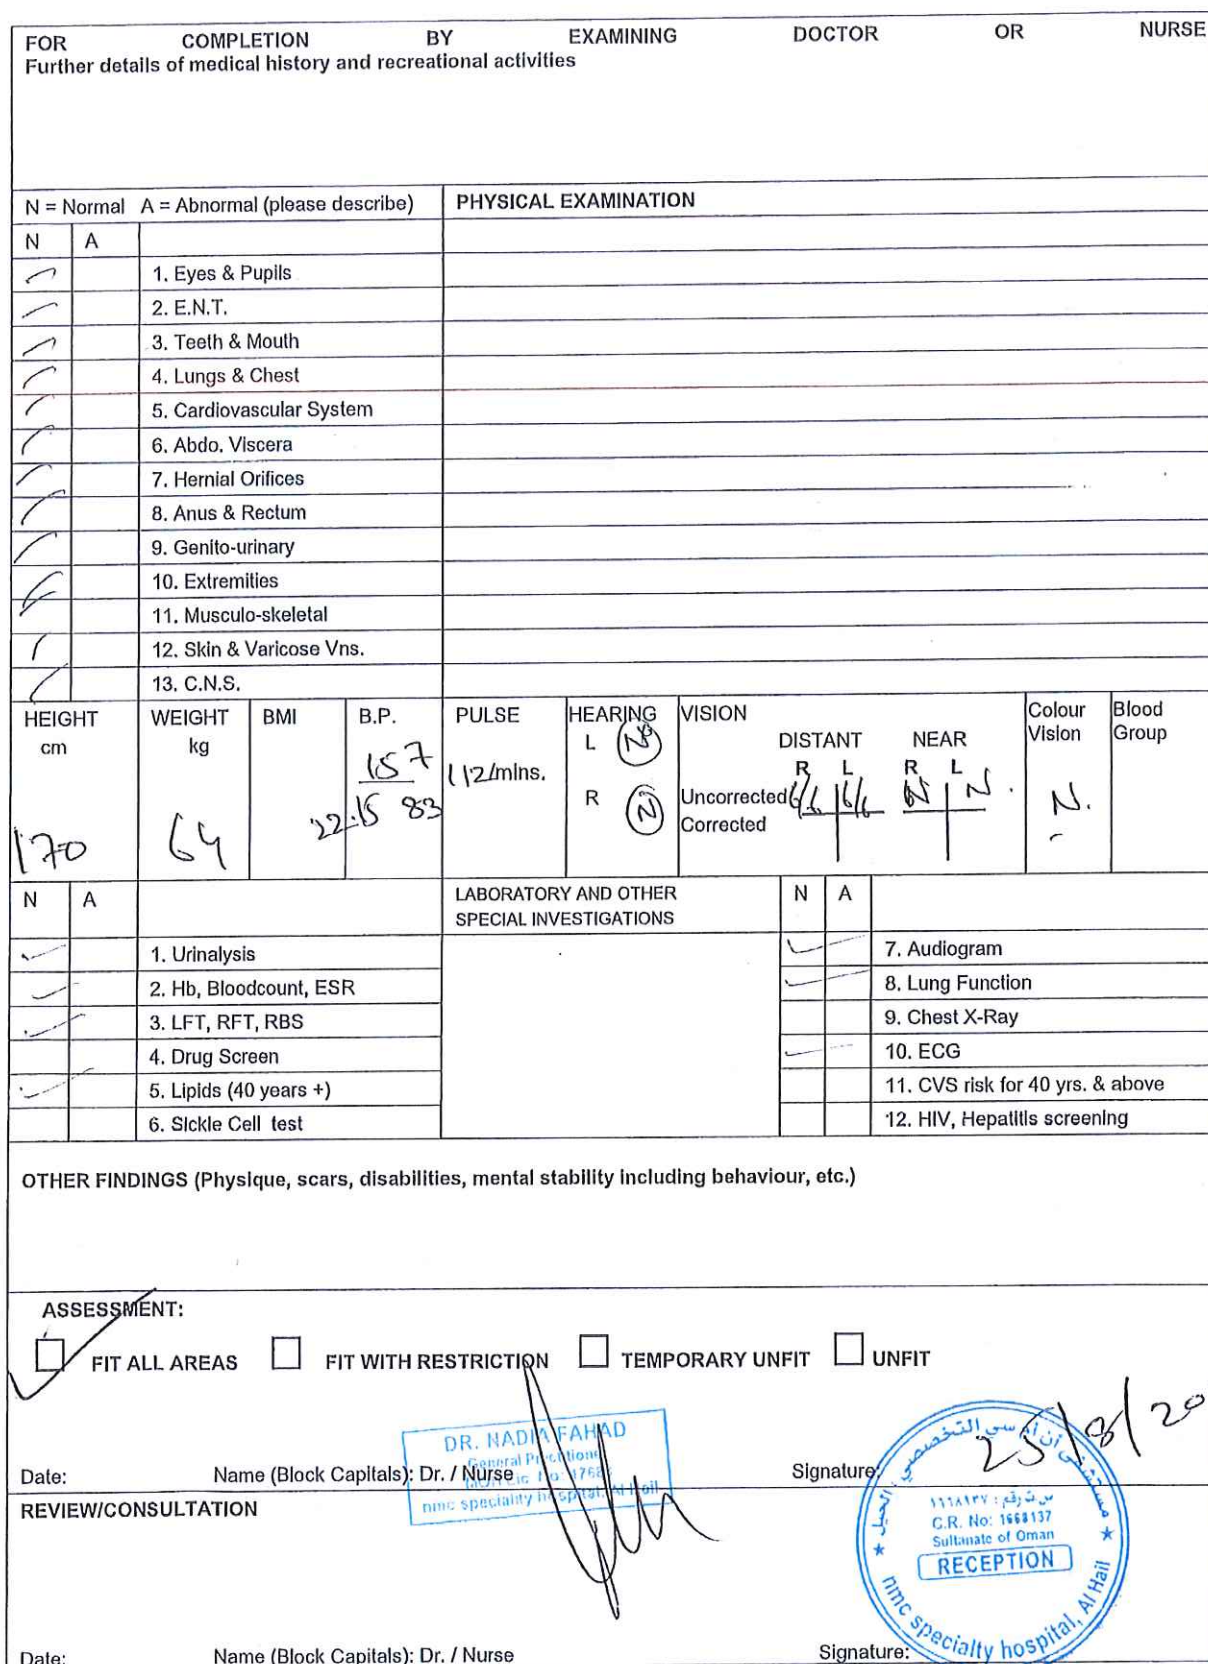 FOR COMPLETION BY EXAMINING DOCTOR OR NURSE
Further details of medical history and recreational activities
N = Normal A = Abnormal (please describe) PHYSICAL EXAMINATION
N A
1. Eyes & Pupils
2. E.N.T.
3. Teeth & Mouth
4. Lungs & Chest
5. Cardiovascular System
6. Abdo. Viscera
7. Hernial Orifices
8. Anus & Rectum
9. Genito-urinary
10. Extremities
11. Musculo-skeletal
12. Skin & Varicose Vns.
13. C.N.S.
HEIGHT WEIGHT BMI B.P. PULSE HEARING VISION Colour Blood
cm kg L N DISTANT NEAR Vision Group
157 112/mins. R L R L
170 64 22.15 83 R N Uncorrected 6/6 6/6 N N. N.
Corrected
N A LABORATORY AND OTHER N A
SPECIAL INVESTIGATIONS
1. Urinalysis 7. Audiogram
2. Hb, Bloodcount, ESR 8. Lung Function
3. LFT, RFT, RBS 9. Chest X-Ray
4. Drug Screen 10. ECG
5. Lipids (40 years +) 11. CVS risk for 40 yrs. & above
6. Sickle Cell test 12. HIV, Hepatitis screening
OTHER FINDINGS (Physique, scars, disabilities, mental stability including behaviour, etc.)
ASSESSMENT:
FIT ALL AREAS FIT WITH RESTRICTION TEMPORARY UNFIT UNFIT
25/8/20
DR. NADIA FAHAD
General Practitioner
MOH Lic. No:
nmc speciality hospital, Al Hail
Date: Name (Block Capitals): Dr. / Nurse Signature:
REVIEW/CONSULTATION
مستشفى أن أم سي التخصصي، الحيل
س ت رقم : ١٦٦٨١٣٧
C.R. No: 1668137
Sultanate of Oman
RECEPTION
nmc specialty hospital, Al Hail
Date: Name (Block Capitals): Dr. / Nurse Signature: